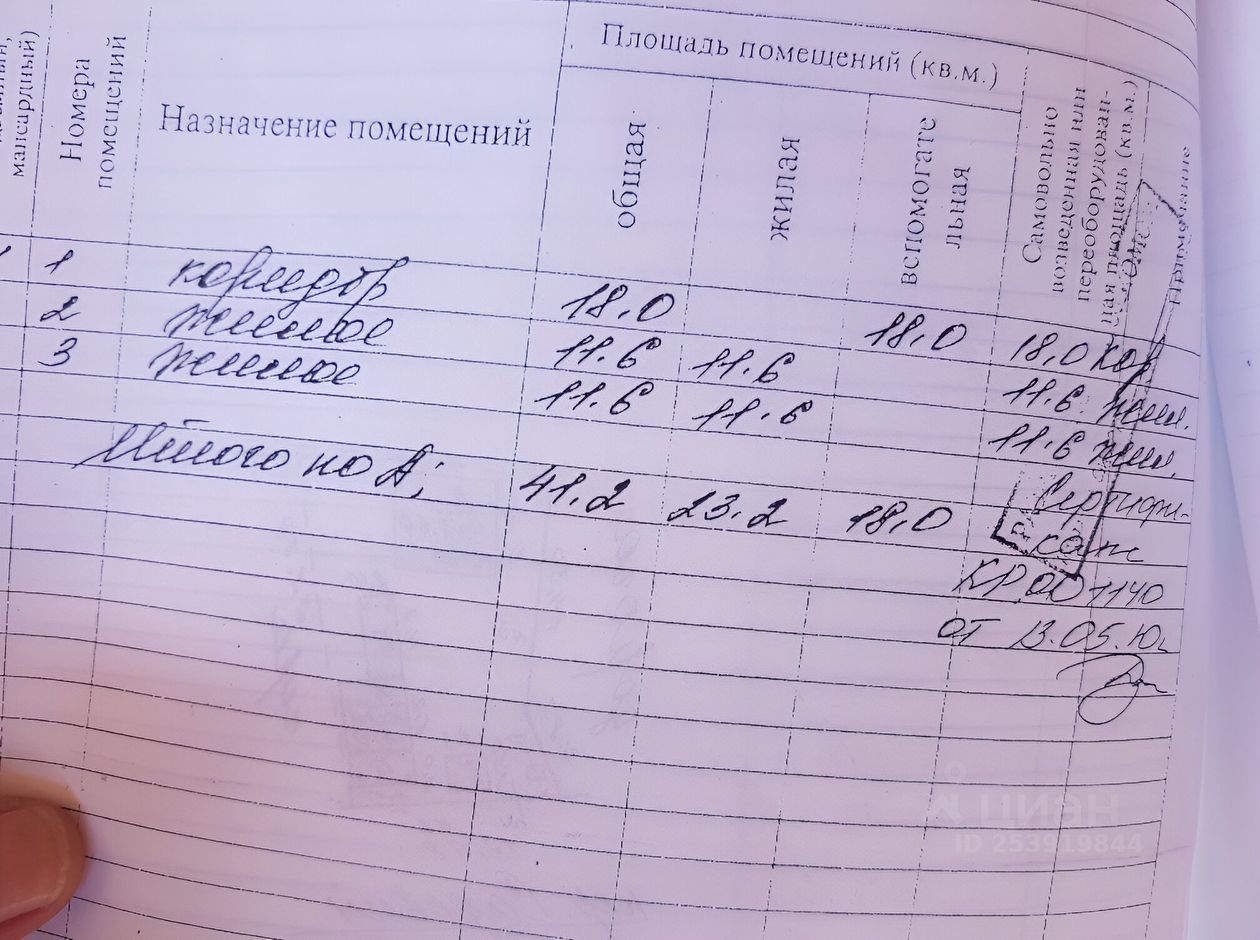 мансардный)
Номера
помещений
Назначение помещений
Площадь помещений (кв.м.)
общая
жилая
вспомогате
льная
Самовольно
возведенная или
переоборудован-
ная площадь (кв.м.)
Примечание
1 коридор 18.0 18.0 18.0 кор
2 жилое 11.6 11.6 11.6 жил.
3 жилое 11.6 11.6 11.6 жил.
Итого по А; 41.2 23.2 18.0
Сертифи-
кат
КР 001140
от 13.05.10г
ЦИАН
ID 253919844